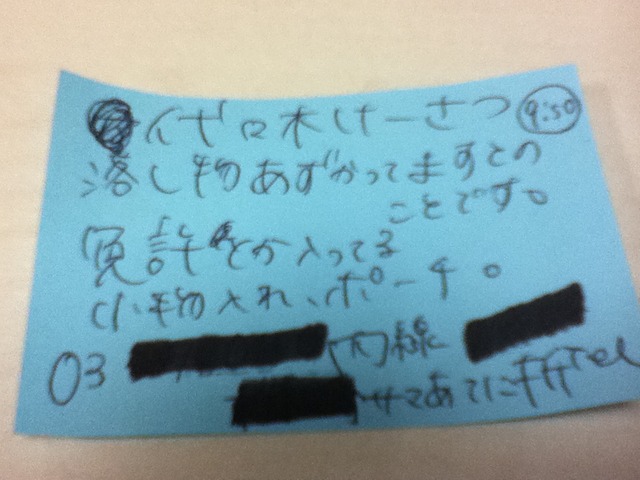 代々木けーさつ 9:50
落し物あずかってますとの
ことです。
免許とか入ってる
小物入れ、ポーチ。
03 内線
サマあてに Tel